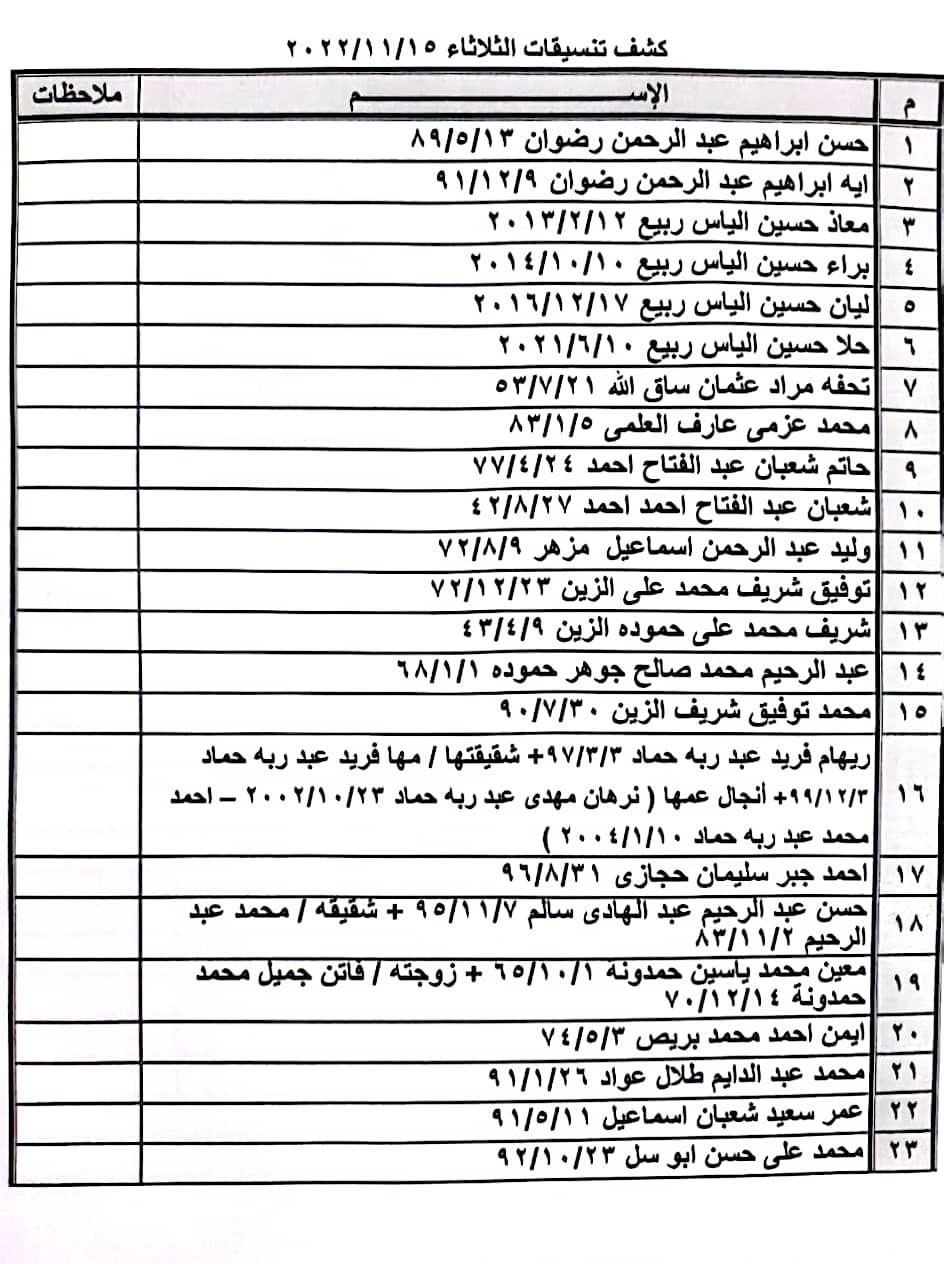 كشف تنسيقات الثلاثاء ٢٠٢٢/١١/١٥
م الإســـــــــم ملاحظات
١ حسن ابراهيم عبد الرحمن رضوان ٨٩/٥/١٣
٢ ايه ابراهيم عبد الرحمن رضوان ٩١/١٢/٩
٣ معاذ حسين الياس ربيع ٢٠١٣/٢/١٢
٤ براء حسين الياس ربيع ٢٠١٤/١٠/١٠
٥ ليان حسين الياس ربيع ٢٠١٦/١٢/١٧
٦ حلا حسين الياس ربيع ٢٠٢١/٦/١٠
٧ تحفه مراد عثمان ساق الله ٥٣/٧/٢١
٨ محمد عزمى عارف العلمى ٨٣/١/٥
٩ حاتم شعبان عبد الفتاح احمد ٧٧/٤/٢٤
١٠ شعبان عبد الفتاح احمد احمد ٤٢/٨/٢٧
١١ وليد عبد الرحمن اسماعيل مزهر ٧٢/٨/٩
١٢ توفيق شريف محمد على الزين ٧٢/١٢/٢٣
١٣ شريف محمد على حموده الزين ٤٣/٤/٩
١٤ عبد الرحيم محمد صالح جوهر حموده ٦٨/١/١
١٥ محمد توفيق شريف الزين ٩٠/٧/٣٠
ريهام فريد عبد ربه حماد ٩٧/٣/٣+ شقيقتها / مها فريد عبد ربه حماد
١٦ ٩٩/١٢/٣+ أنجال عمها ( نرهان مهدى عبد ربه حماد ٢٠٠٢/١٠/٢٣ – احمد
محمد عبد ربه حماد ٢٠٠٤/١/١٠ )
١٧ احمد جبر سليمان حجازى ٩٦/٨/٣١
١٨ حسن عبد الرحيم عبد الهادى سالم ٩٥/١١/٧ + شقيقه / محمد عبد
الرحيم ٨٣/١١/٢
١٩ معين محمد ياسين حمدونة ٦٥/١٠/١ + زوجته / فاتن جميل محمد
حمدونة ٧٠/١٢/١٤
٢٠ ايمن احمد محمد بريص ٧٤/٥/٣
٢١ محمد عبد الدايم طلال عواد ٩١/١/٢٦
٢٢ عمر سعيد شعبان اسماعيل ٩١/٥/١١
٢٣ محمد على حسن ابو سل ٩٢/١٠/٢٣